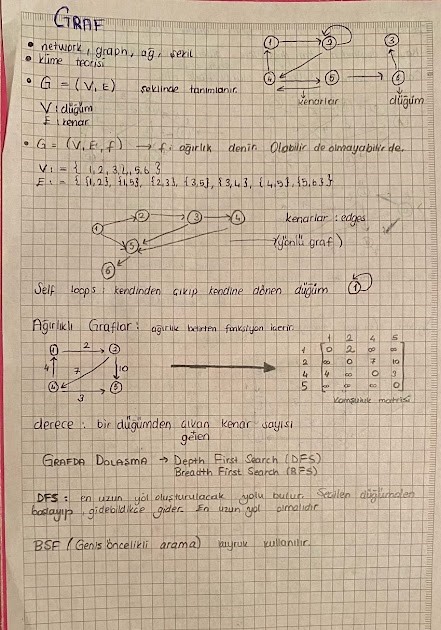 GRAF
• network, graph, ağ, şekil
• küme teorisi
• G = (V, E) şeklinde tanımlanır.
V : düğüm
E : kenar
1 2 3
4 5 6
kenarlar düğüm
• G = (V, E, f) → f : ağırlık denir. Olabilir de olmayabilir de.
V : = { 1, 2, 3, 4, 5, 6 }
E : = { {1,2}, {1,5}, {2,3}, {3,5}, {3,4}, {4,5}, {5,6} }
1 2 3 4
5
6
kenarlar : edges
(yönlü graf)
Self loops : kendinden çıkıp kendine dönen düğüm 1
Ağırlıklı Graflar : ağırlık belirten fonksiyon içerir.
1 2 2
4 7 10
4 3 5
1 2 4 5
1 0 2 ∞ ∞
2 ∞ 0 7 10
4 4 ∞ 0 3
5 ∞ ∞ ∞ 0
Komşuluk matrisi
derece : bir düğümden çıkan kenar sayısı
gelen
GRAFDA DOLAŞMA → Depth First Search (DFS)
Breadth First Search (BFS)
DFS : en uzun yol oluşturulacak yolu bulur. Seçilen düğümden
başlayıp, gidebildikçe gider. En uzun yol olmalıdır
BSF (Geniş öncelikli arama) kuyruk kullanılır.